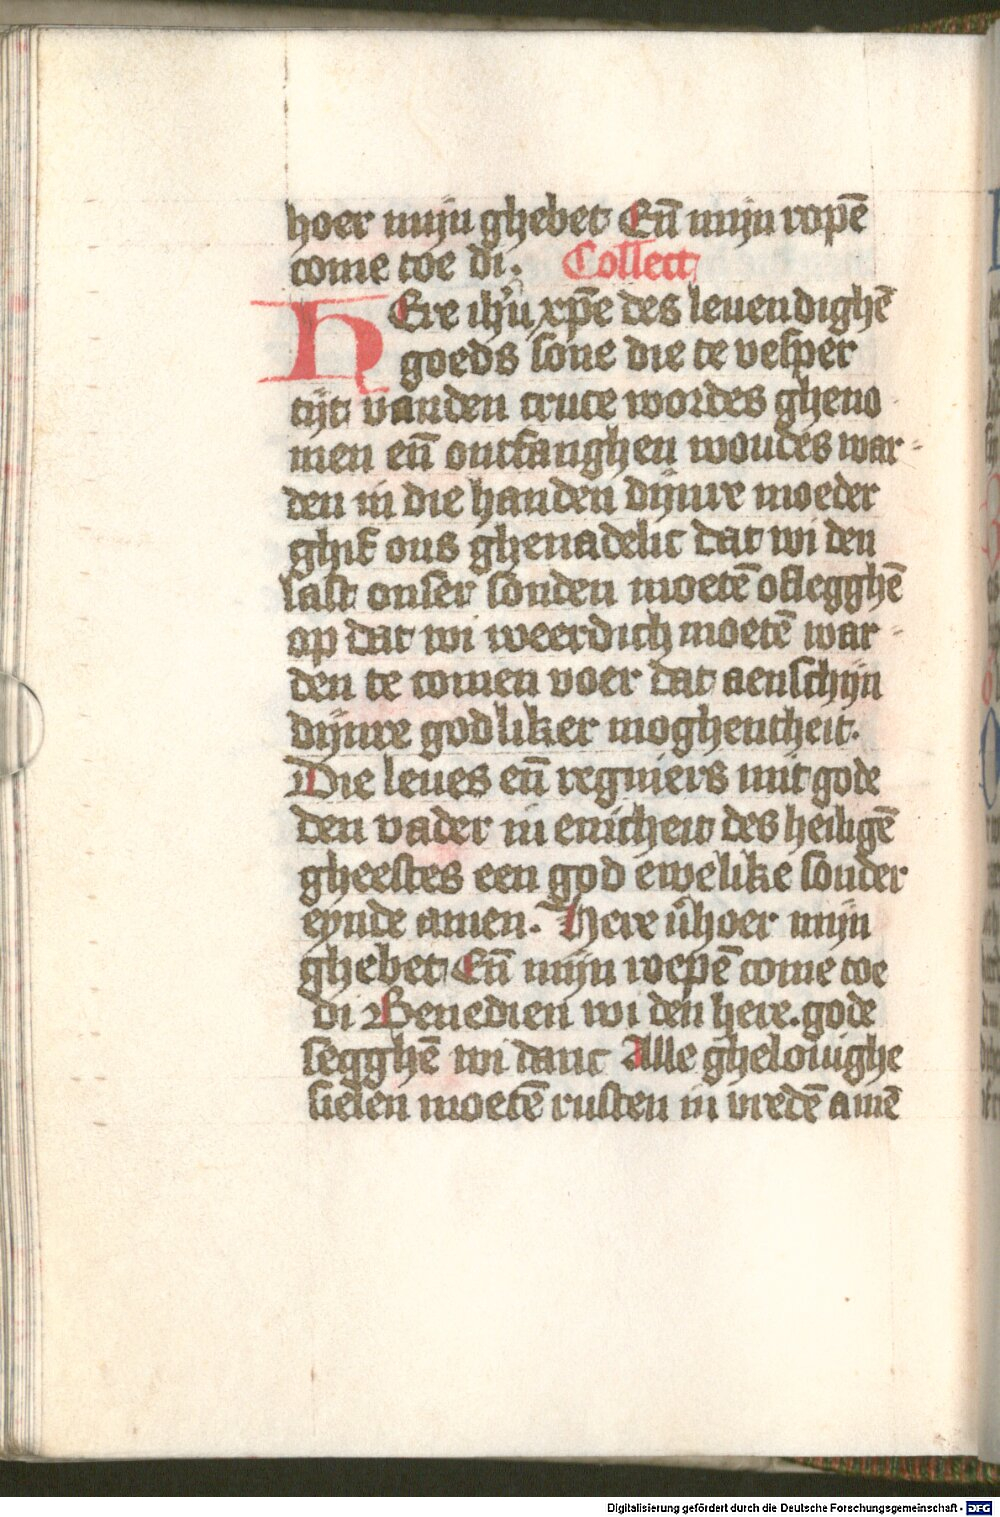 hoer mijn ghebet Eñ mijn ropē
come toe di. Collect
HEre ihū xpē des leuendighē
goeds sone die te vesper
tijt vanden cruce wordes gheno
men eñ ontfanghen woudes war-
den in die handen dijnre moeder
ghif ons ghenadelic dat wi den
last onser sonden moetē oflegghē
op dat wi weerdich moetē war-
den te comen voer dat aenschijn
dijnre godliker moghentheit.
Die leues eñ regniers mit gode
den vader in enicheit des heiligē
gheestes een god ewelike sonder
eynde amen. Here v̄hoer mijn
ghebet Eñ mijn roepē come toe
di Benedien wi den here. gode
segghē wi danc Alle ghelouighe
sielen moetē rusten in vredē amē
Digitalisierung gefördert durch die Deutsche Forschungsgemeinschaft - DFG